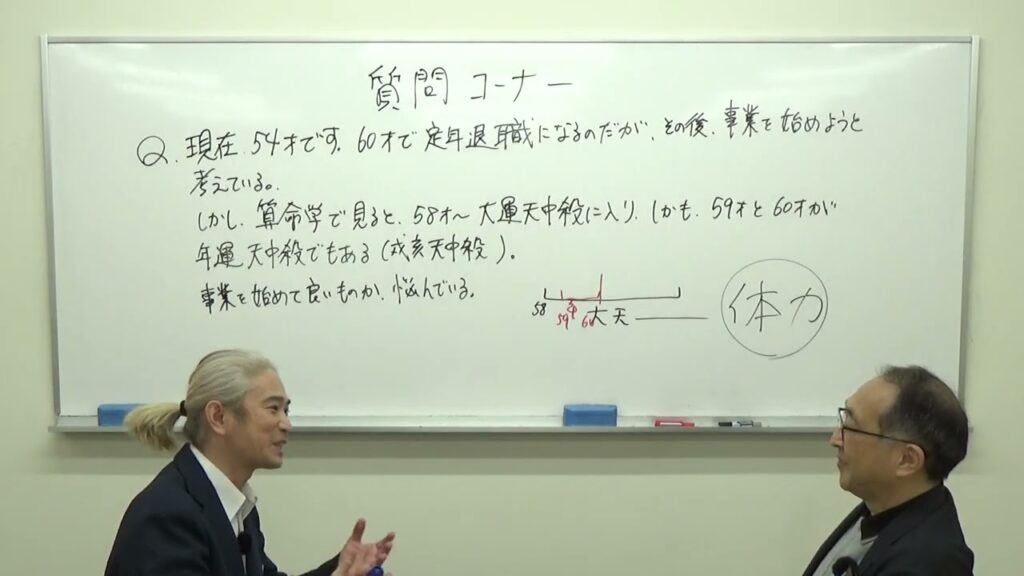 質問コーナー
Q. 現在、54才です。60才で定年退職になるのだが、その後、事業を始めようと
考えている。
しかし、算命学で見ると、58才〜大運天中殺に入り、しかも、59才と60才が
年運天中殺でもある(戌亥天中殺)。
事業を始めて良いものか、悩んでいる。
58 59 60 大天 体力